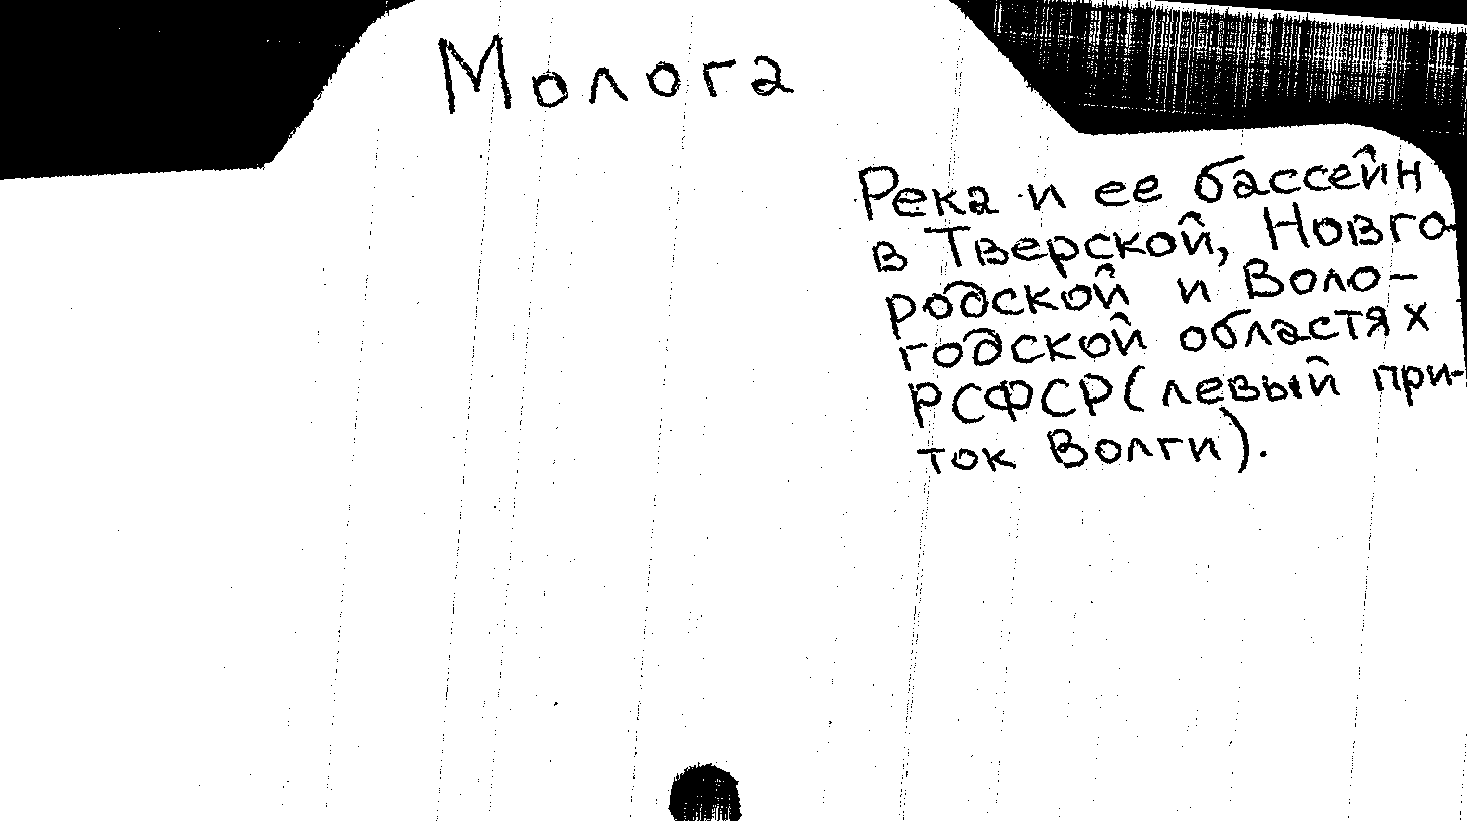 Молога
Река и ее бассейн
в Тверской, Новго-
родской и Воло-
годской областях
РСФСР (левый при-
ток Волги).